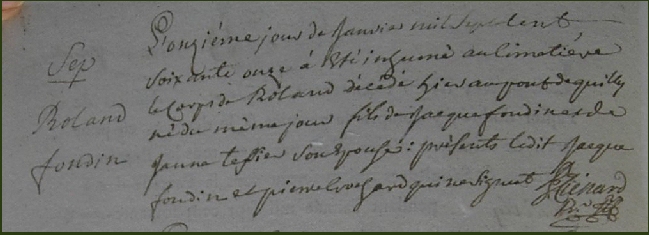 Sep
Roland
fondin
L'onziéme jour de Janvier mil sept cent
soixante onze a êté inhumé au cimetiére
le Corps de Roland décédé hier au pont de quilly
né du même jour fils de Jacque fondin et de
Jeanne teffier son Epouse : présents ledit Jacque
fondin et pierre Rochard qui ne signent